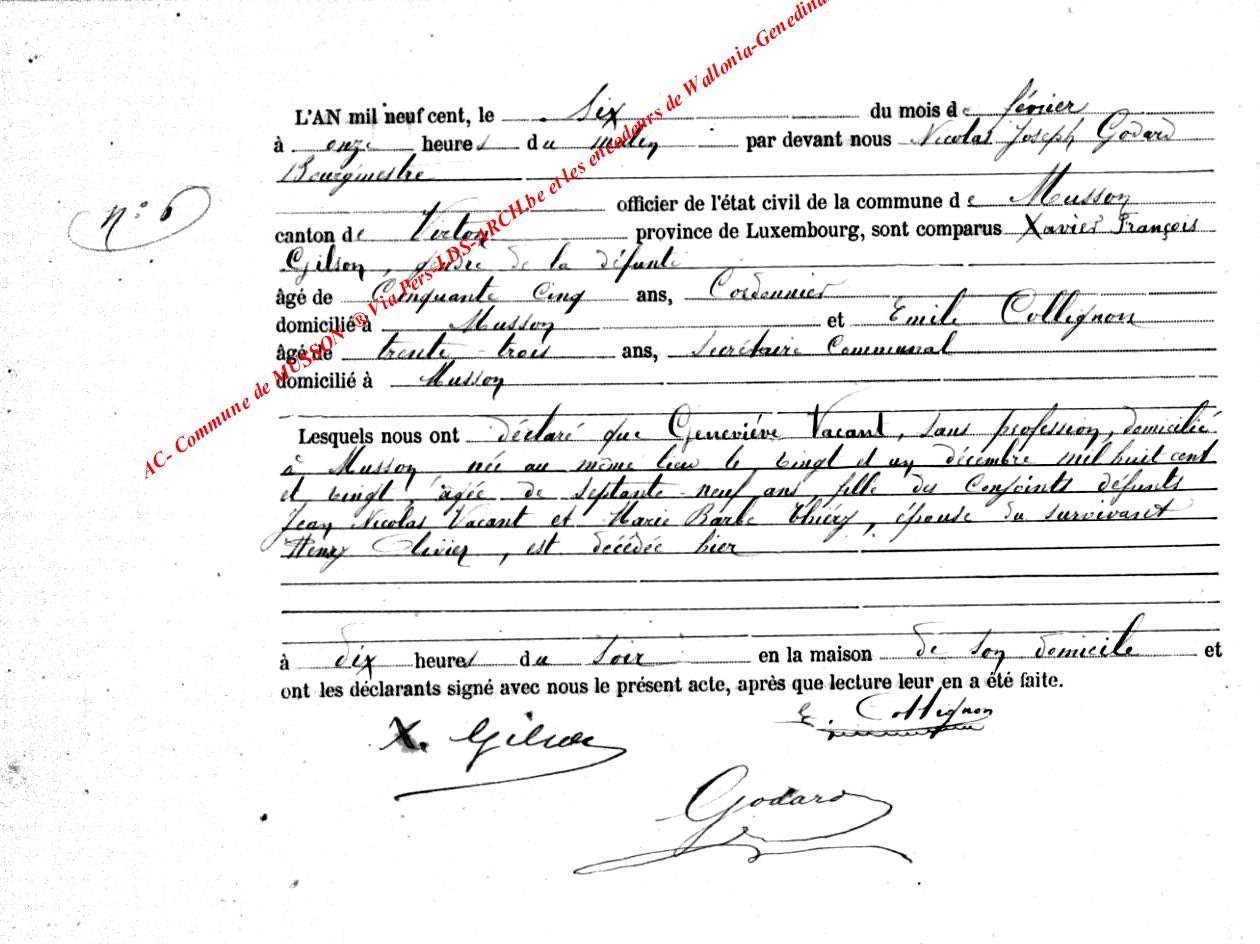 AC- Commune de MUSSON ® Via Pers-LDS-ARCH.be et les encodeurs de Wallonia-Genedina
L'AN mil neuf cent, le Six du mois de février
à onze heures du matin par devant nous Nicolas Joseph Godard
Bourgmestre
n° 6
officier de l'état civil de la commune de Musson
canton de Virton province de Luxembourg, sont comparus Xavier François
Gilson, gendre de la défunte
âgé de Cinquante cinq ans, Cordonnier
domicilié à Musson et Emile Collignon
âgé de trente-trois ans, Secrétaire Communal
domicilié à Musson
Lesquels nous ont déclaré que Geneviéve Vacant, sans profession, domiciliée
à Musson née au même lieu le vingt et un décembre mil huit cent
et vingt, âgée de septante-neuf ans, fille des Conjoints défunts
Jean Nicolas Vacant et Marie Barbe Thiéry, épouse du survivant
Henry Olivier, est décédée hier
à dix heures du soir en la maison de son domicile et
ont les déclarants signé avec nous le présent acte, après que lecture leur en a été faite.
X. Gilson
E. Collignon
Godard